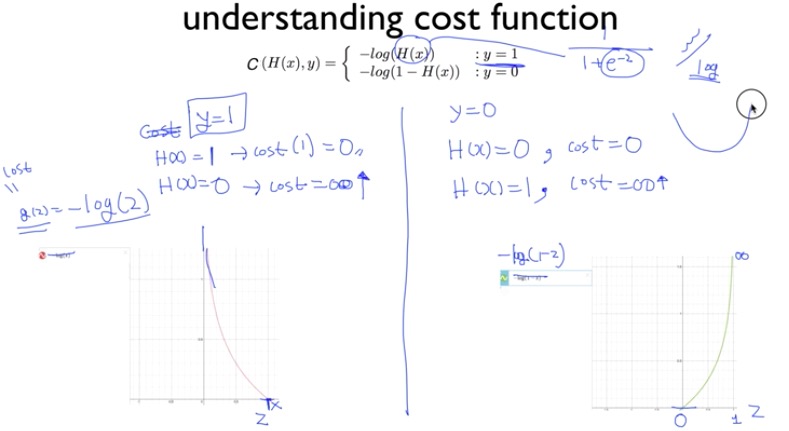 understanding cost function
C (H(x), y) = { -log(H(x)) : y = 1
-log(1 - H(x)) : y = 0
1
1+e^-z
log
cost y=1
H(x)=1 → cost(1)=0
H(x)=0 → cost=∞ ↑
cost
=
g(z)=-log(z)
y=0
H(x)=0, cost=0
H(x)=1, cost=∞↑
-log(1-z)
∞
x
z
0 1 z